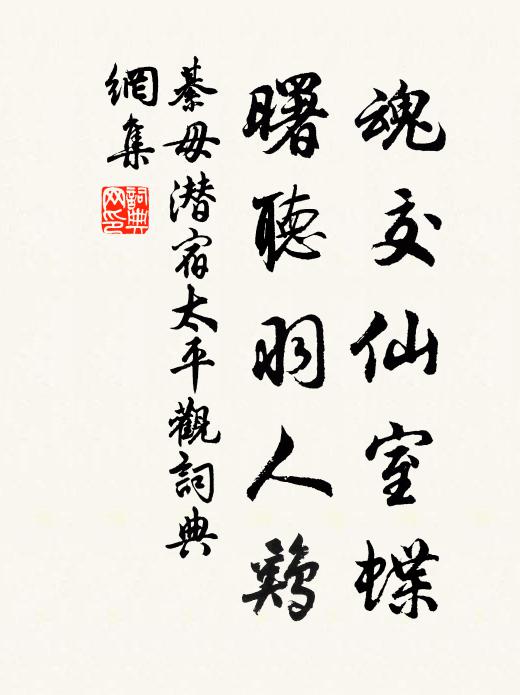 魂交仙室蝶
曙聽羽人鷄
綦毋潛宿太平觀詞典
網集
詞典网印